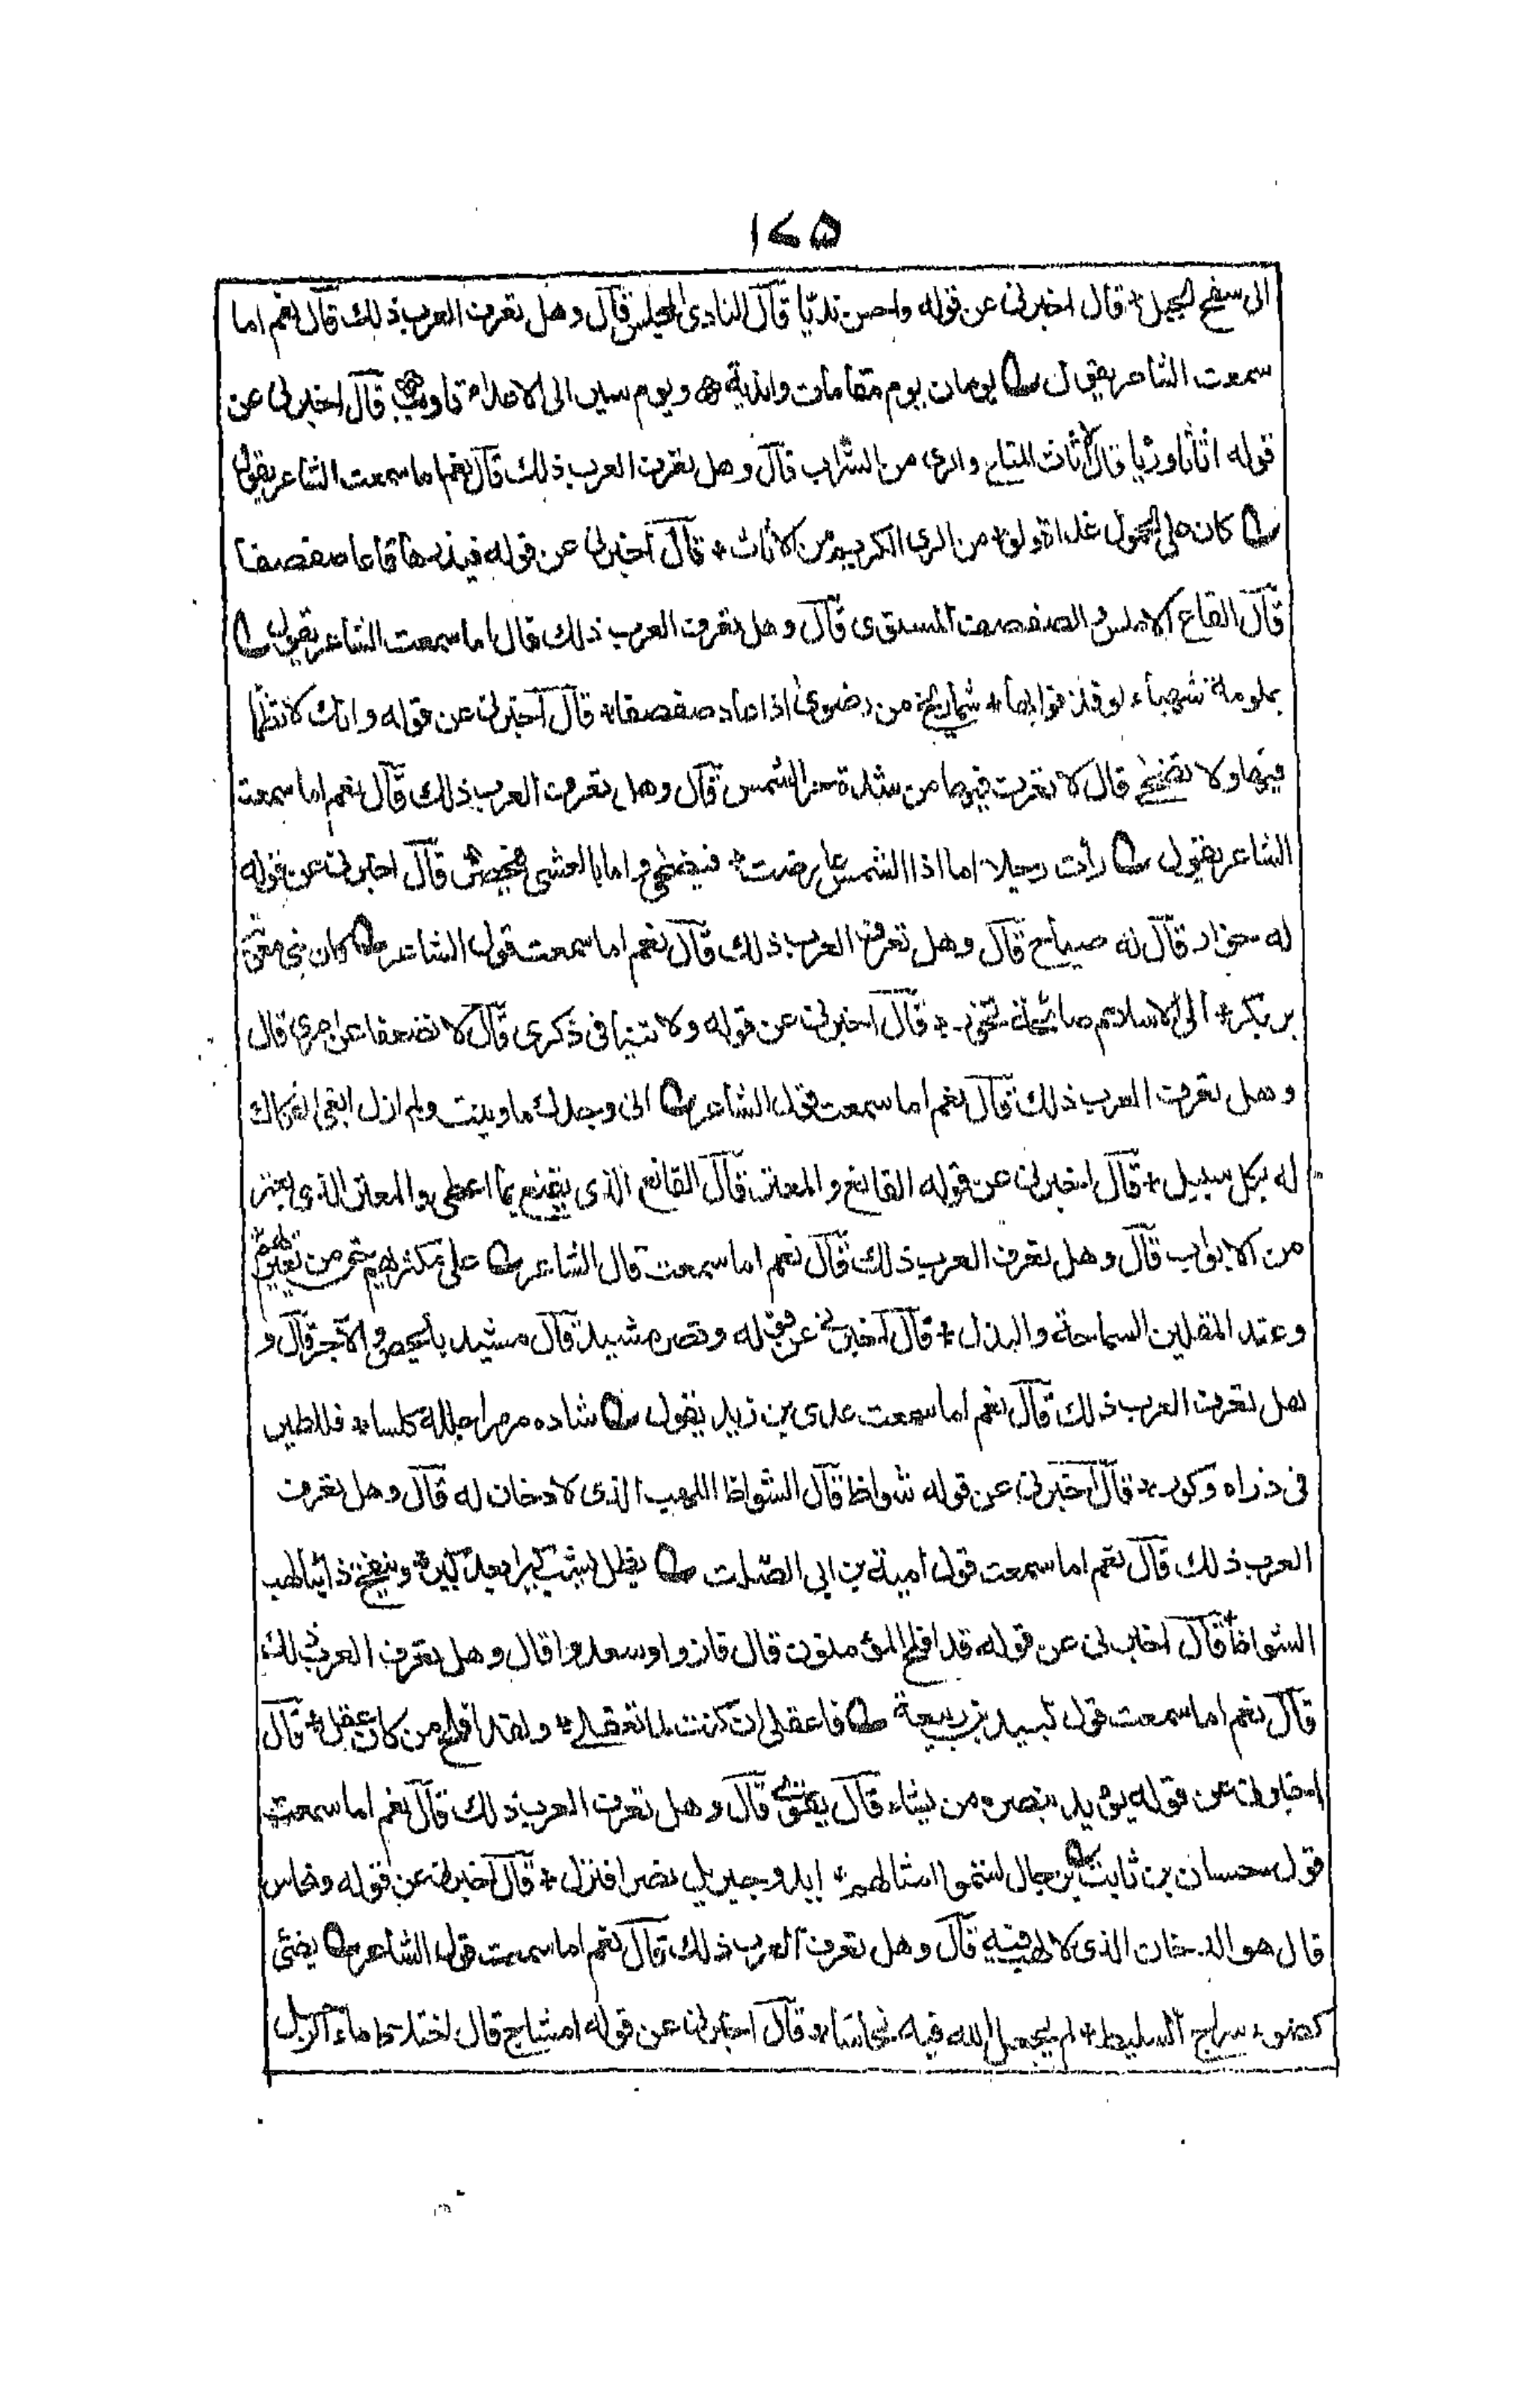 ١٢٥
الى سفح الجبل * قال اخبرني عن قوله واحسن نديّا قال النادى المجلس قال وهل تعرف العرب ذلك قال نعم اما
سمعت الشاعر يقول يومان يوم مقامات واندية ويوم سير الى الاعداء تاويب قال اخبرني عن
قوله اثاثا ورئيا قال الاثاث المتاع والرى من الشراب قال وهل تعرف العرب ذلك قال نعم اما سمعت الشاعر يقول
كان على الحمول غداة ولوا * من الرى الكريم من الاثاث * قال اخبرني عن قوله فيذرها قاعا صفصفا
قال القاع الاملس والصفصف المستوى قال وهل تعرف العرب ذلك قال اما سمعت الشاعر يقول
بملومة شهباء لو قذفوا بها * شماريخ من رضوى اذا عاد صفصفا * قال اخبرني عن قوله وانك لا تظمأ
فيها ولا تضحى قال لا تعرق فيها من شدة حر الشمس قال وهل تعرف العرب ذلك قال نعم اما سمعت
الشاعر يقول رأت رجلا اما اذا الشمس عارضت * فيضحى واما بالعشى فيخصر * قال اخبرني عن قوله
له خوار قال له صياح قال وهل تعرف العرب ذلك قال نعم اما سمعت قول الشاعر كان بنى معوية
بن بكر * الى الاسلام صائحة تخور * قال اخبرني عن قوله ولا تنيا فى ذكرى قال لا تضعفا عن امرى قال
وهل تعرف العرب ذلك قال نعم اما سمعت قول الشاعر انى وجدك ما ونيت ولم ازل ابغى الفكاك
له بكل سبيل * قال اخبرني عن قوله القانع والمعتر قال القانع الذى يقنع بما اعطى والمعتر الذى يعتر
من الابواب قال وهل تعرف العرب ذلك قال نعم اما سمعت قال الشاعر على مكثريهم حق من يعتريهم
وعند المقلين السماحة والبذل * قال اخبرني عن قوله وقصر مشيد قال مشيد بالجص والآجر قال و
هل تعرف العرب ذلك قال نعم اما سمعت عدى بن زيد يقول شاده مرمرا وجلله كلسا * فللطير
فى ذراه وكور * قال اخبرني عن قوله شواظ قال الشواظ اللهب الذى لا دخان له قال وهل تعرف
العرب ذلك قال نعم اما سمعت قول امية بن ابى الصلت يظل يشب كيرا بعد كير * وينفخ ذائبا لهب
الشواظ * قال اخبرني عن قوله قد افلح المؤمنون قال فازوا وسعدوا قال وهل تعرف العرب ذلك
قال نعم اما سمعت قول لبيد بن ربيعة فاعقلى ان كنت لما تعقلى * ولقد افلح من كان عقل * قال
اخبرني عن قوله يؤيد بنصره من يشاء قال يقوى قال وهل تعرف العرب ذلك قال نعم اما سمعت
قول حسان بن ثابت برجال لستموا امثالهم * ايدوا جبريل نصرا فنزل * قال اخبرني عن قوله ونحاس
قال هو الدخان الذى لا لهب فيه قال وهل تعرف العرب ذلك قال نعم اما سمعت قول الشاعر يضئ
كضوء سراج السليط * لم يجعل الله فيه نحاسا * قال اخبرني عن قوله امشاج قال اختلاط ماء الرجل